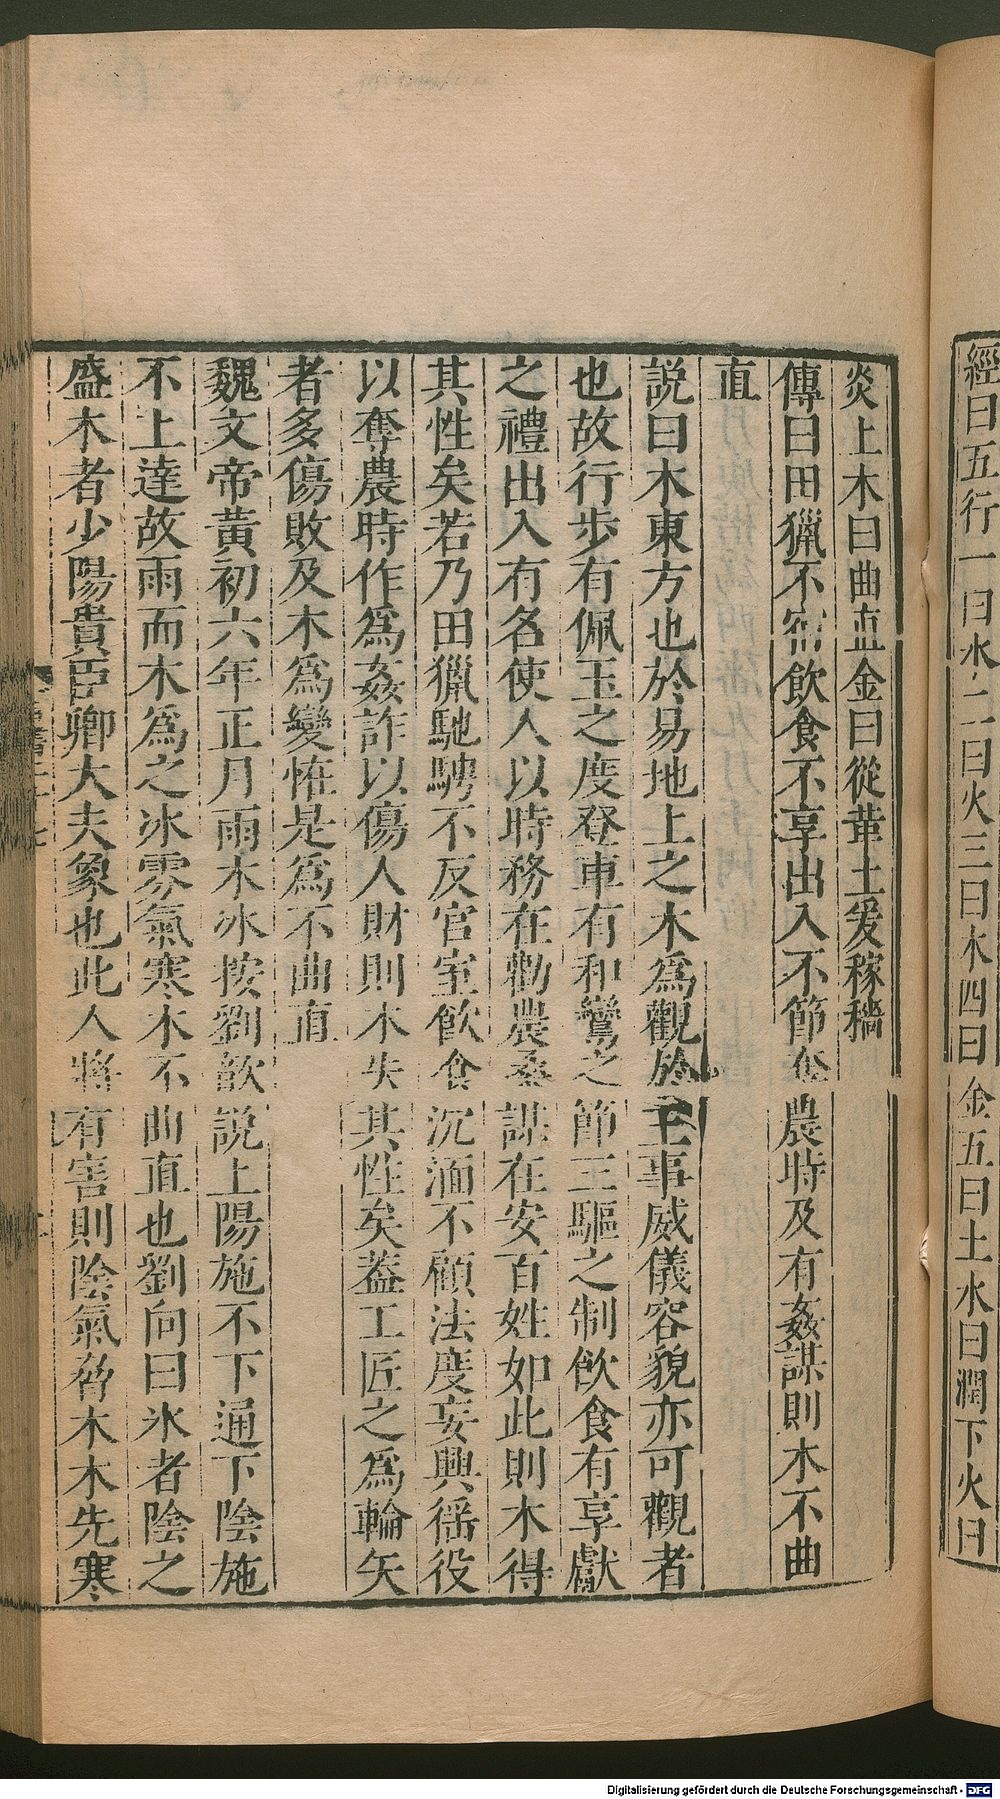 經曰五行一曰水二曰火三曰木四曰金五曰土水曰潤下火曰
炎上木曰曲直金曰從革土爰稼穡
傳曰田獵不宿飲食不享出入不節奪農時及有姦謀則木不曲
直
說曰木東方也於易地上之木爲觀於王事威儀容貌亦可觀者
也故行步有佩玉之度登車有和鸞之節三驅之制飲食有享獻
之禮出入有名使人以時務在勸農桑謀在安百姓如此則木得
其性矣若乃田獵馳騁不反宮室飲食沉湎不顧法度妄興徭役
以奪農時作爲姦詐以傷人財則木失其性矣蓋工匠之爲輪矢
者多傷敗及木爲變怪是爲不曲直
魏文帝黃初六年正月雨木冰按劉歆說上陽施不下通下陰施
不上達故雨而木爲之冰雰氣寒木不曲直也劉向曰氷者陰之
盛木者少陽貴臣卿大夫象也此人將有害則陰氣脅木木先寒
Digitalisierung gefördert durch die Deutsche Forschungsgemeinschaft - DFG